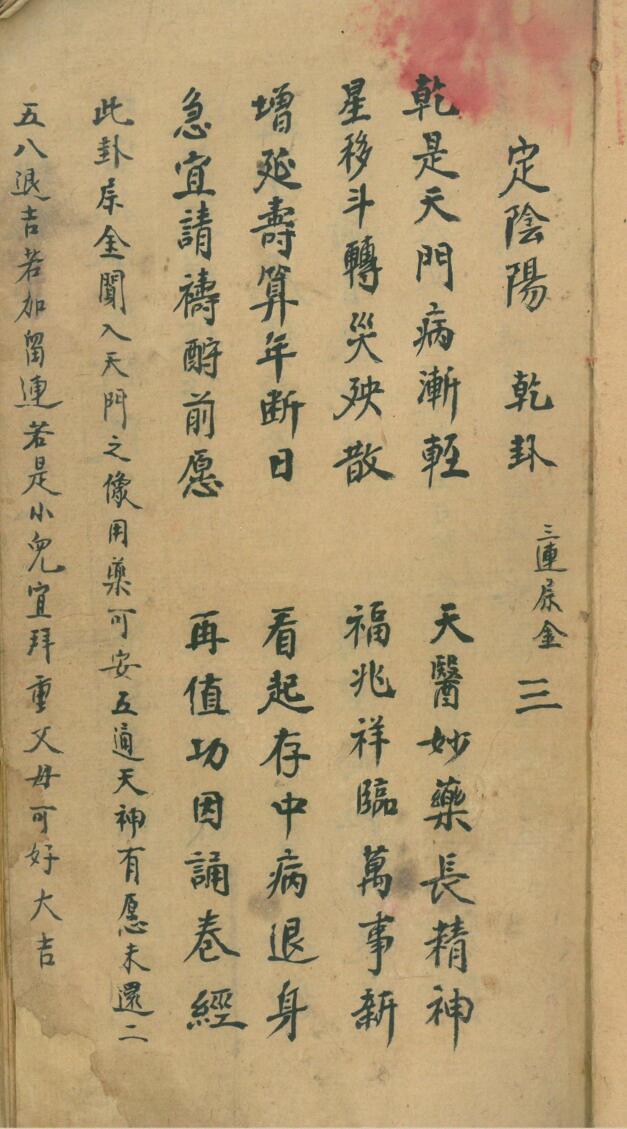 定陰陽 乾卦 三連屬金 ☰
乾是天門病漸輕 天醫妙藥長精神
星移斗轉災殃散 福兆祥臨萬事新
增延壽算年断日 看起存中病退身
急宜請禱酧前愿 再值功因誦卷經
此卦屬金聞入天門之像用藥可安五通天神有愿未還二
五八退吉若加留連若是小兒宜拜重父母可好大吉